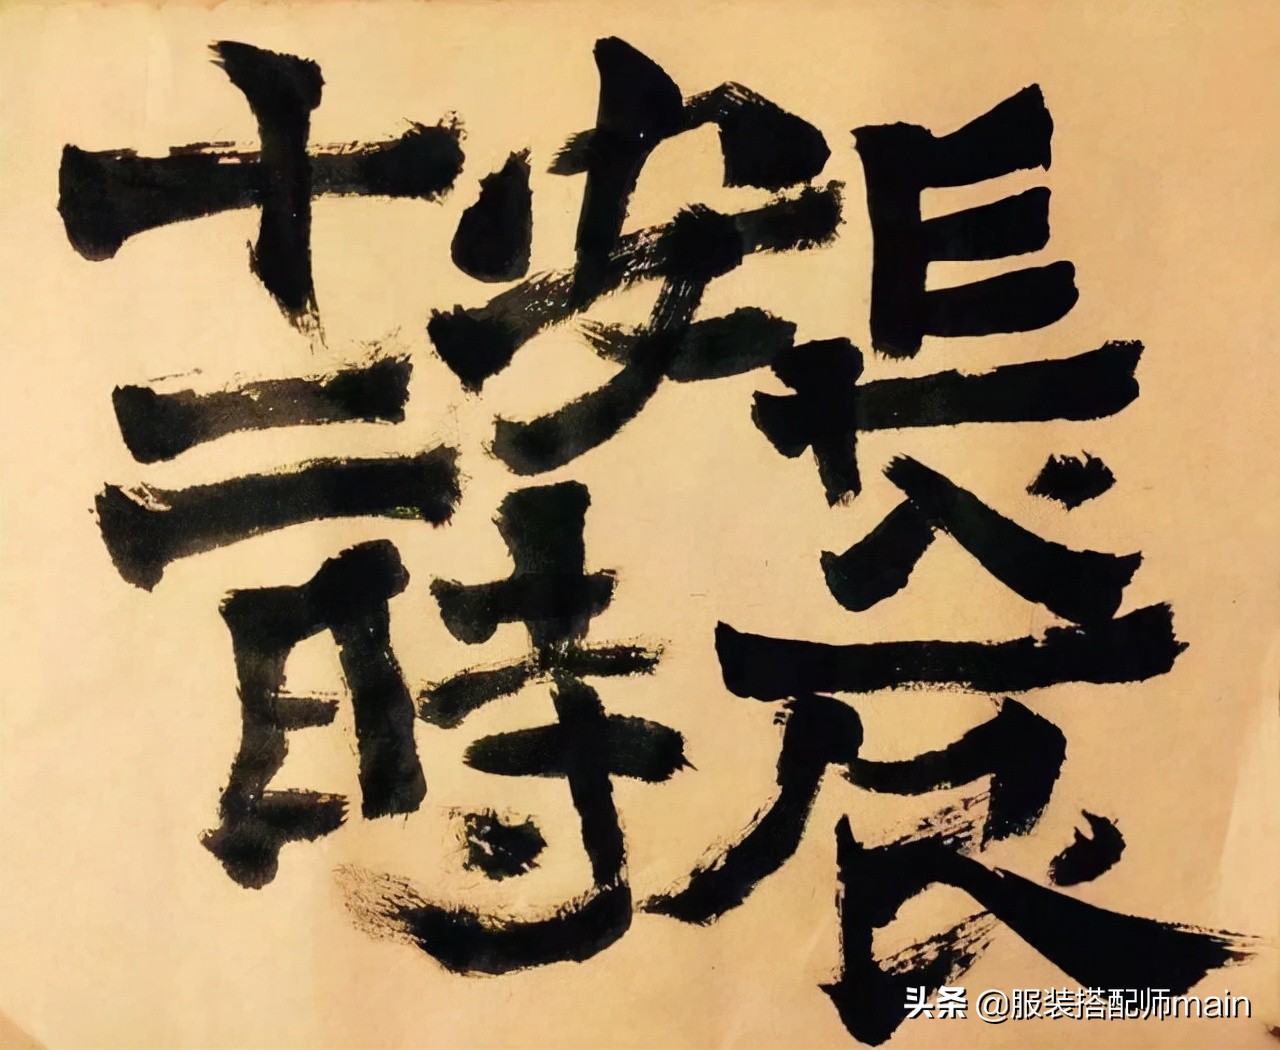 長安十二
時辰
头条 @服装搭配师main